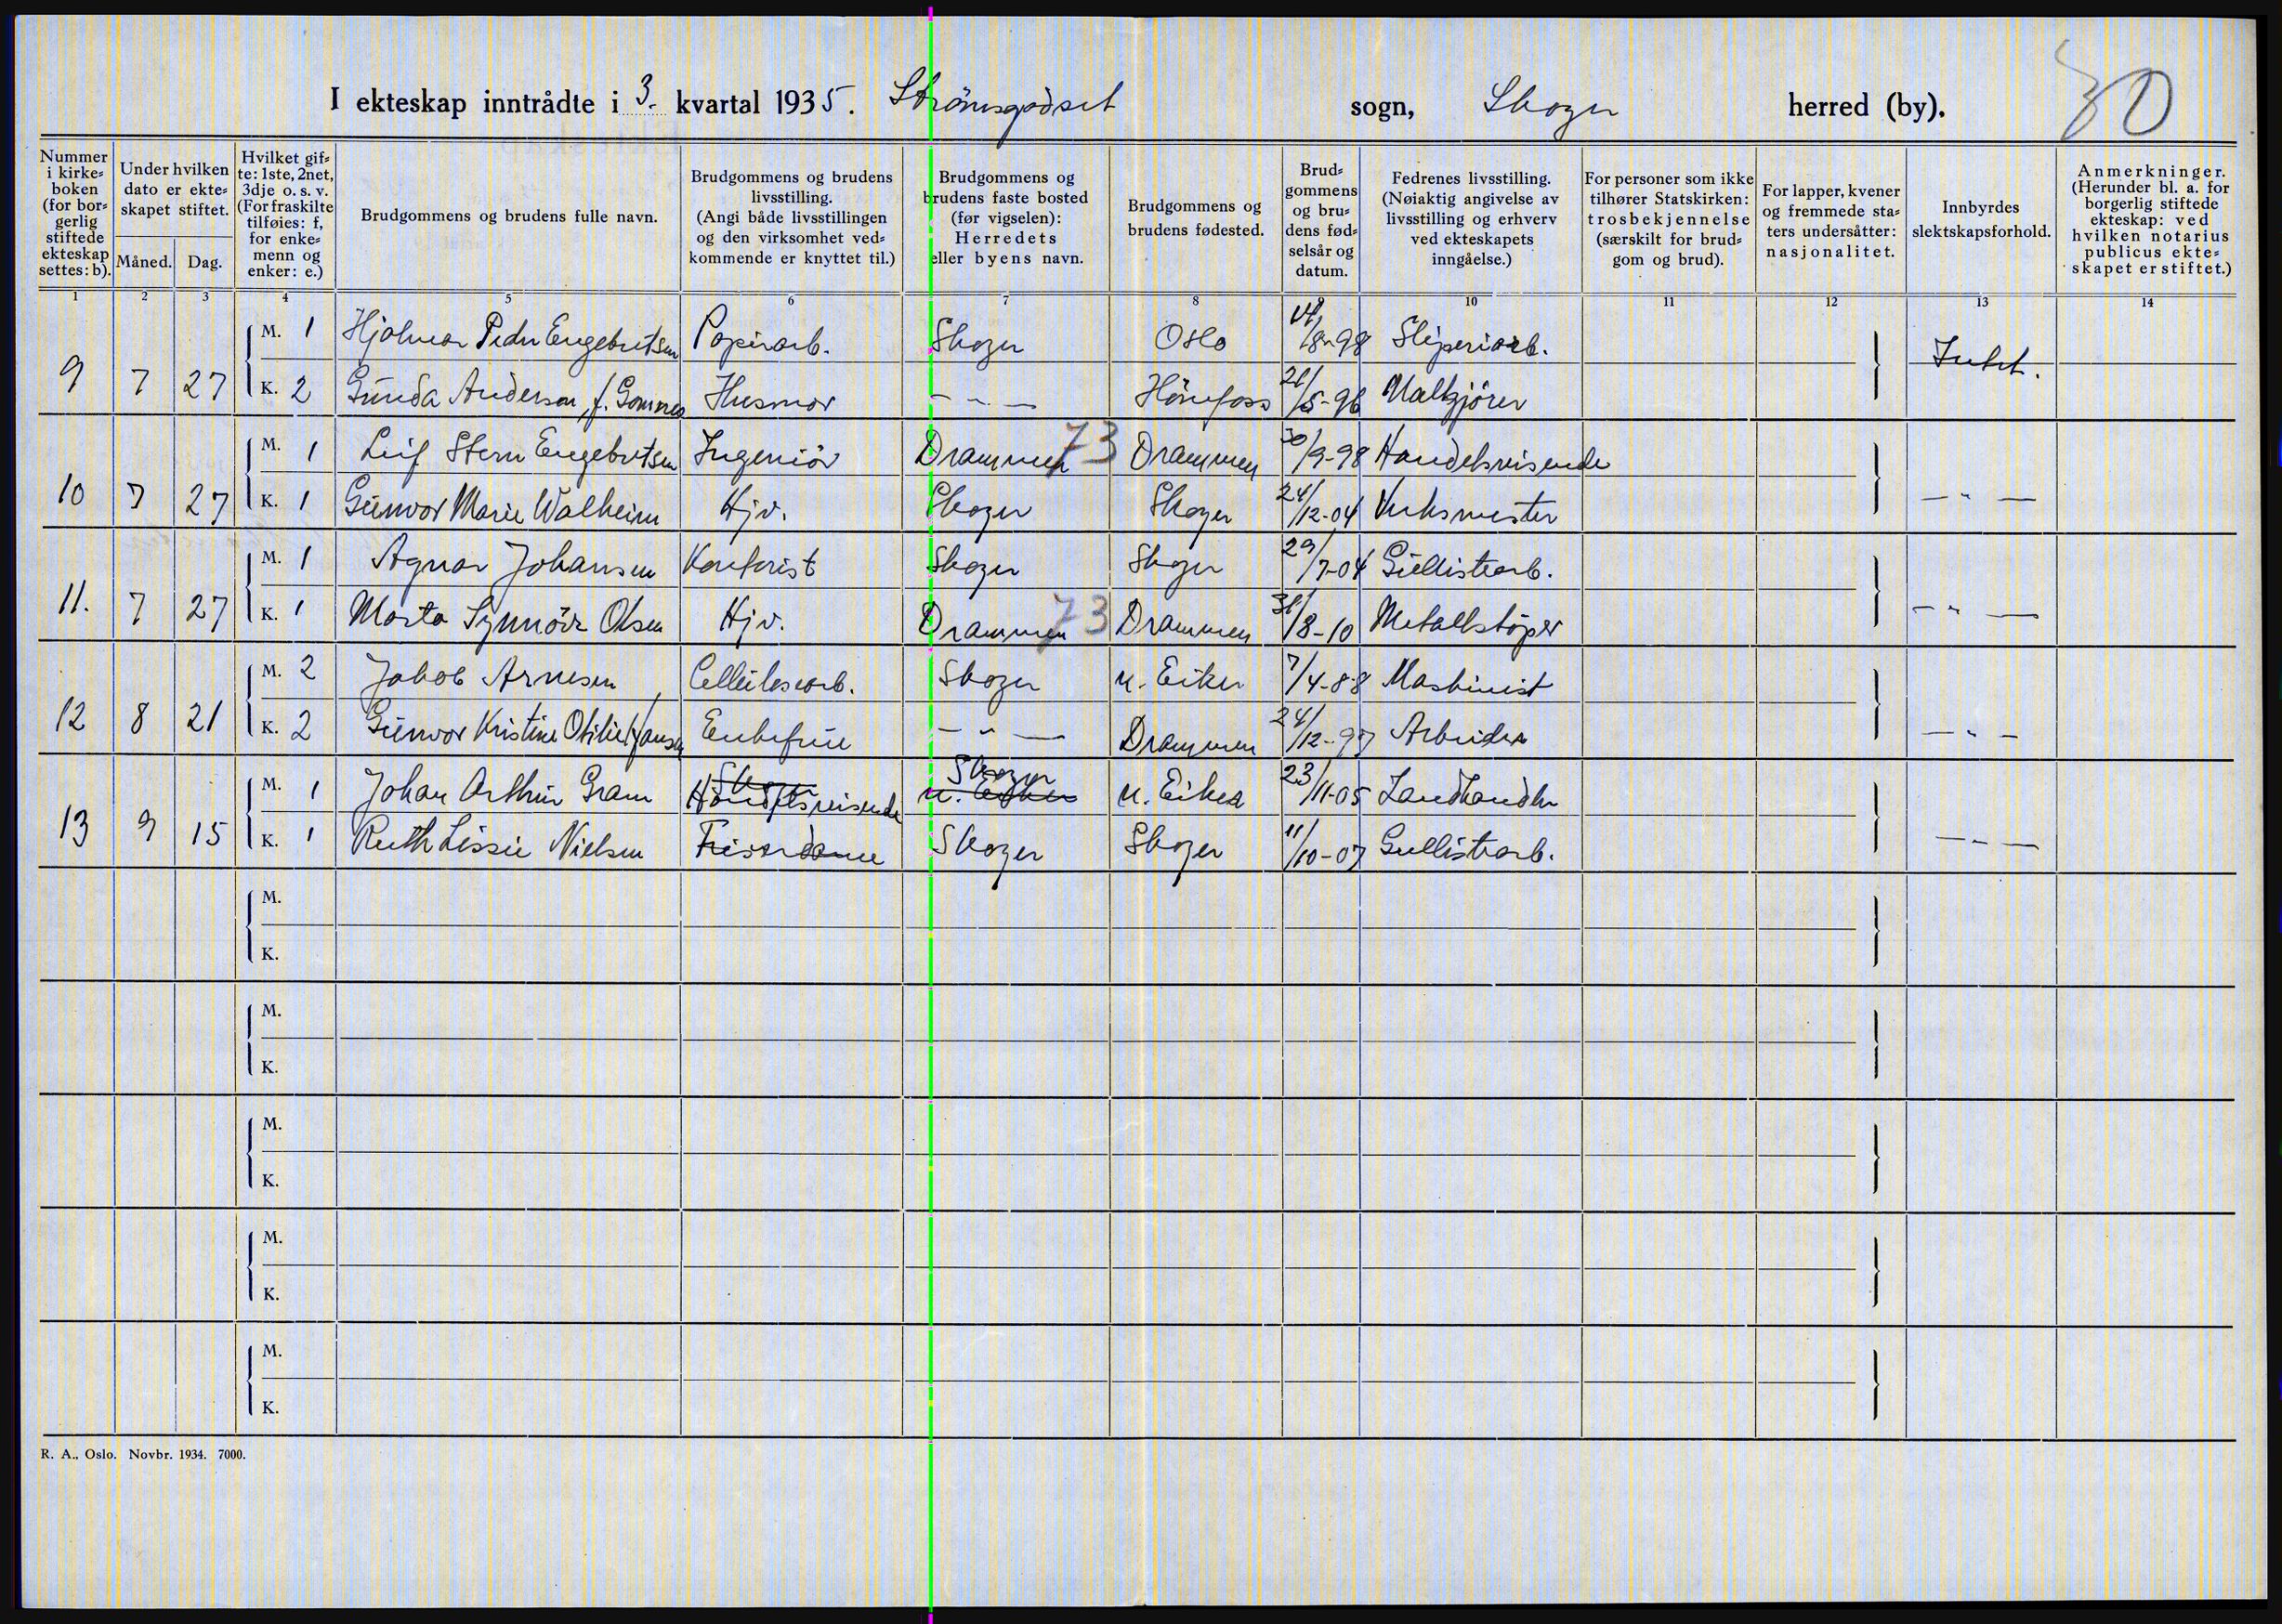 I ekteskap inntrådte i 3. kvartal 1935. Strömsgodset sogn, Skoger herred (by). 30
Nummer i kirkeboken (for borgerlig stiftede ekteskap settes: b).
Under hvilken dato er ekteskapet stiftet.
Måned. Dag.
Hvilket gifte: 1ste, 2net, 3dje o. s. v. (For fraskilte tilføies: f, for enkemenn og enker: e.)
Brudgommens og brudens fulle navn.
Brudgommens og brudens livsstilling. (Angi både livsstillingen og den virksomhet vedkommende er knyttet til.)
Brudgommens og brudens faste bosted (før vigselen): Herredets eller byens navn.
Brudgommens og brudens fødested.
Brudgommens og brudens fødselsår og datum.
Fedrenes livsstilling. (Nøiaktig angivelse av livsstilling og erhverv ved ekteskapets inngåelse.)
For personer som ikke tilhører Statskirken: trosbekjennelse (særskilt for brudgom og brud).
For lapper, kvener og fremmede staters undersåtter: nasjonalitet.
Innbyrdes slektskapsforhold.
Anmerkninger. (Herunder bl. a. for borgerlig stiftede ekteskap: ved hvilken notarius publicus ekteskapet er stiftet.)
1 2 3 4 5 6 7 8 9 10 11 12 13 14
M. 1 Hjalmar Peder Engebretsen Papirarb. Skoger Oslo 14/8-98 Sliperiarb.
9 7 27 K. 2 Gunda Anderson, f. Gomnes Husmor — " — Hönefoss 21/5-96 Malkjörer Intet.
M. 1 Leif Stern Engebretsen Ingeniör Drammen 73 Drammen 30/9-98 Handelsreisende
10 7 27 K. 1 Gunvor Marie Walheim Hjv. Skoger Skoger 24/12-04 Verksmester — " —
M. 1 Agnar Johansen Kontorist Skoger Skoger 29/7-04 Gullistearb.
11. 7 27 K. 1 Marta Synnöve Olsen Hjv. Drammen 73 Drammen 31/8-10 Metallstöper — " —
M. 2 Jakob Arnesen Cellulosearb. Skoger n. Eiker 7/4-88 Maskinist
12 8 21 K. 2 Gunvor Kristine Otilie Hansen Enkefrue — " — Drammen 24/12-97 Arbeider — " —
M. 1 Johan Arthur Gram Handelsreisende Skoger n. Eiker n. Eiker 23/11-05 Landhandler
13 9 15 K. 1 Ruth Lissie Nielsen Frisördame Skoger Skoger 11/10-07 Gullistearb. — " —
M.
K.
M.
K.
M.
K.
M.
K.
M.
K.
R. A., Oslo. Novbr. 1934. 7000.